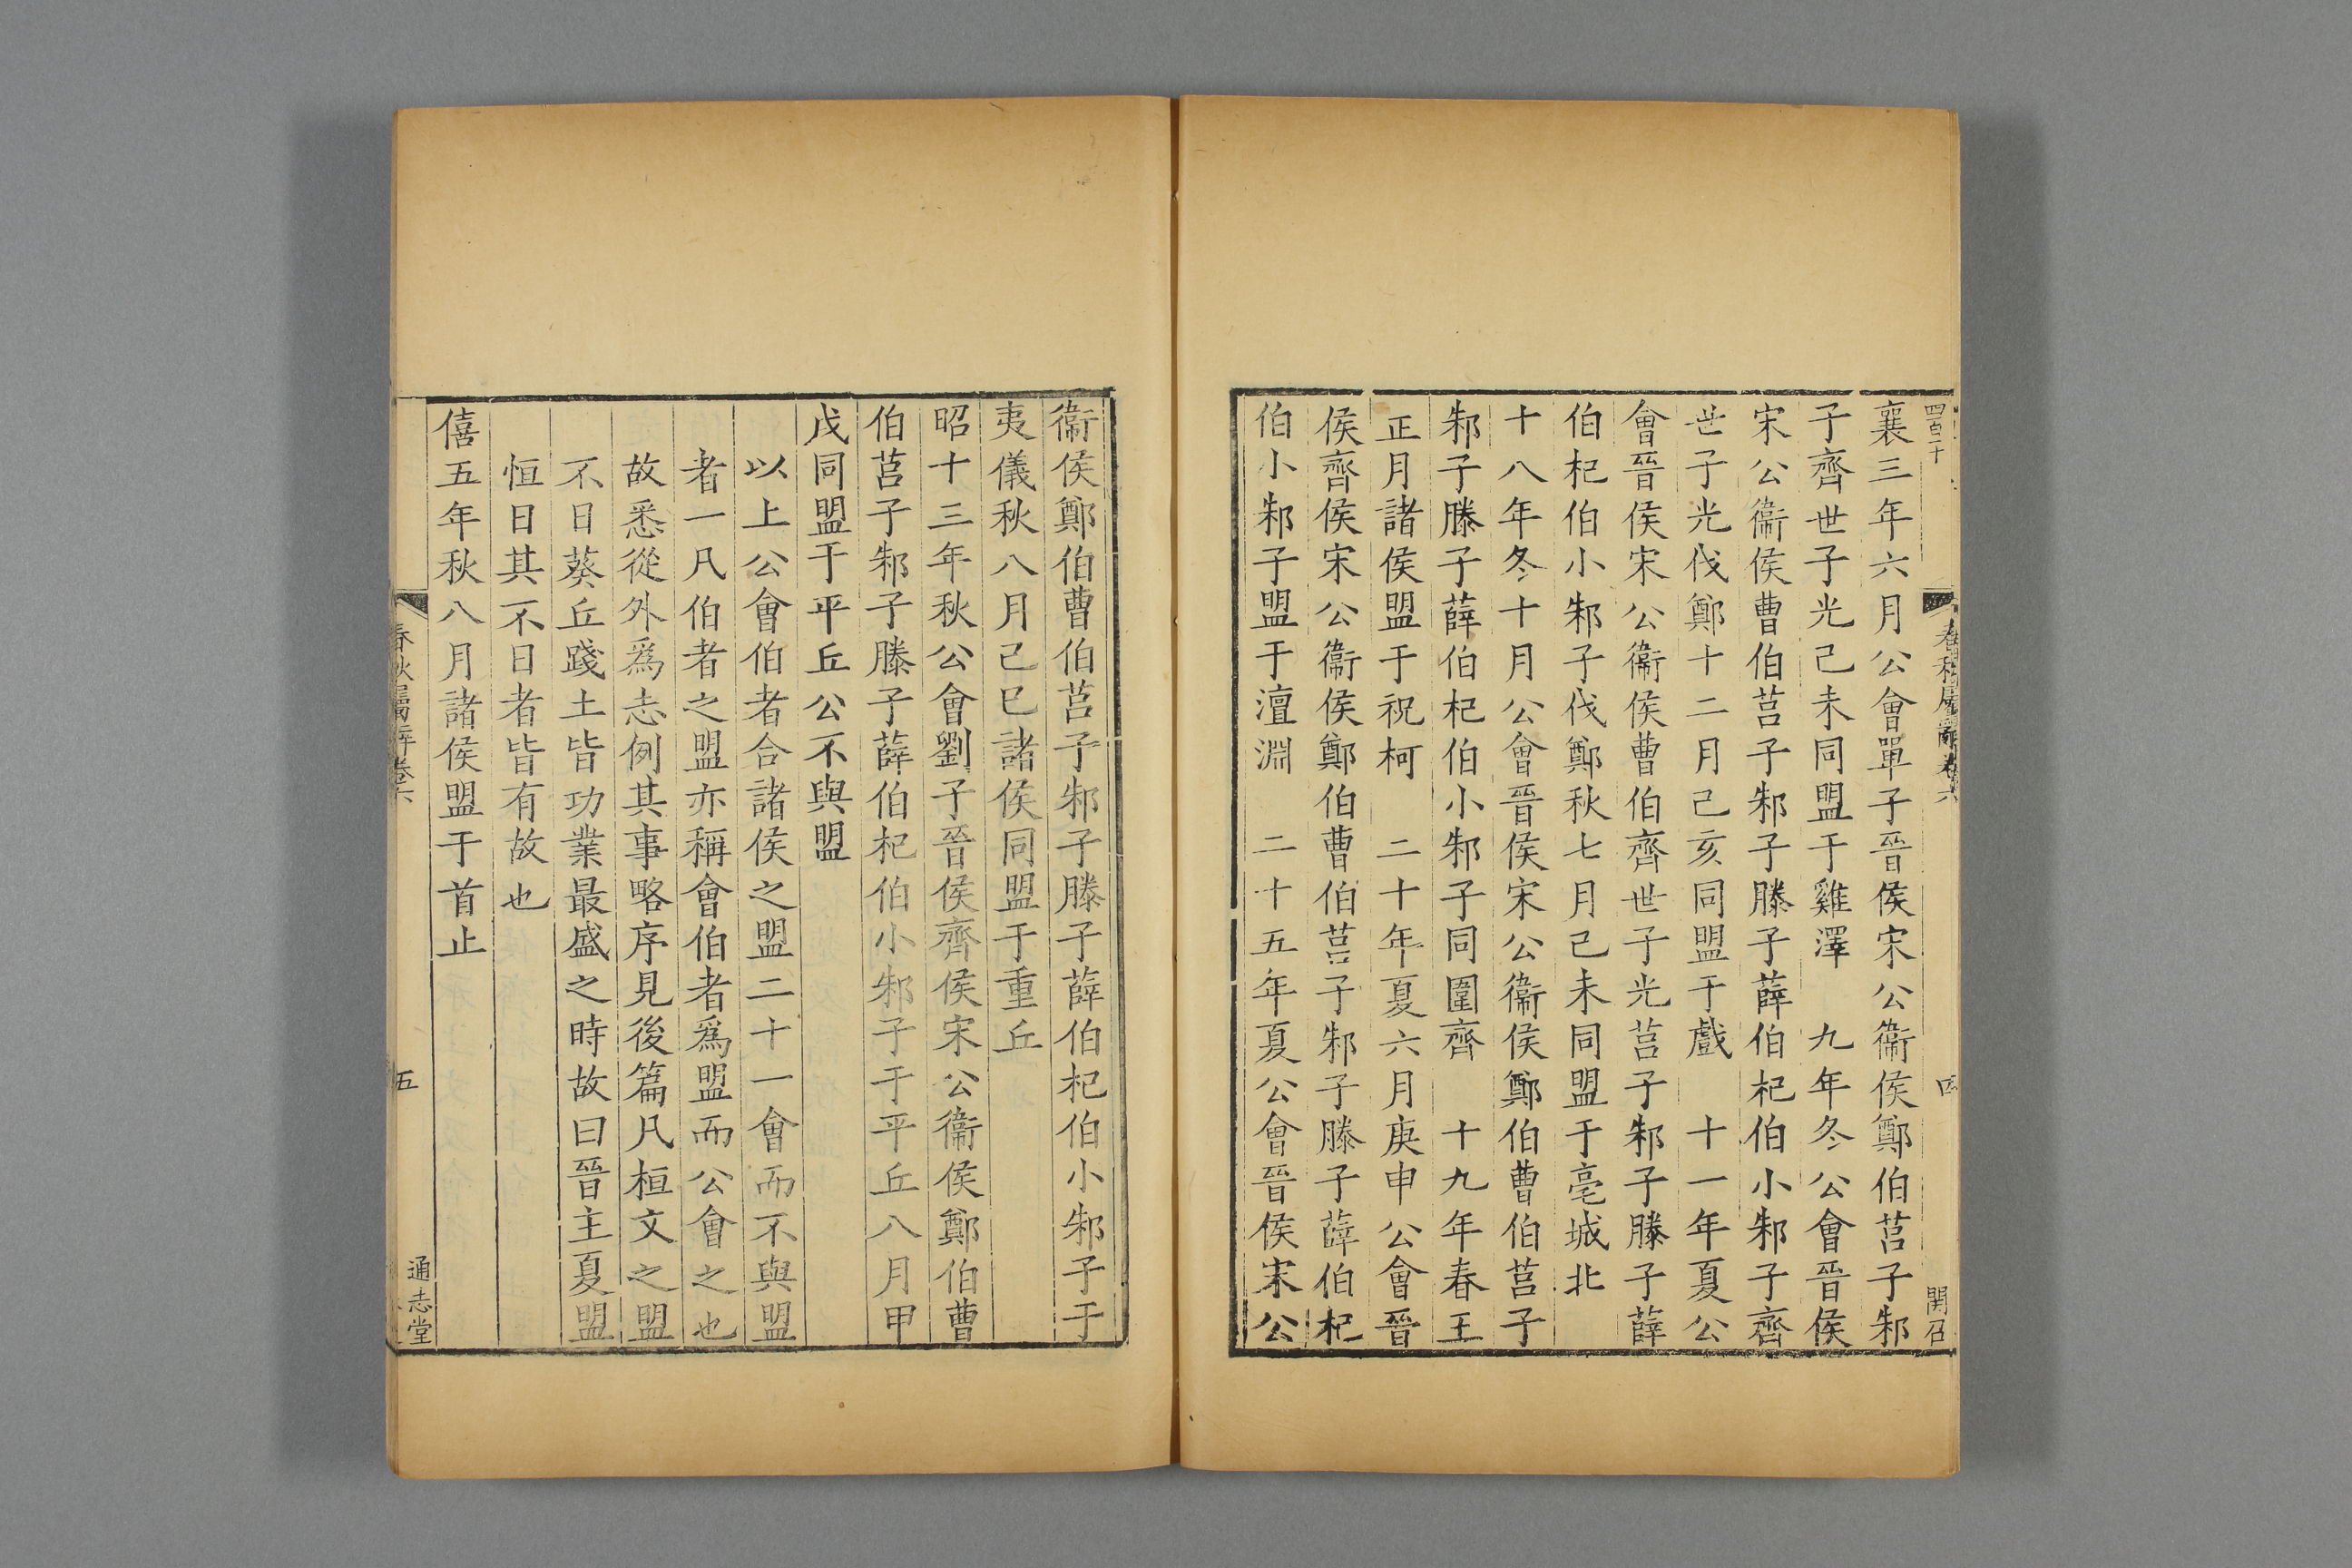 四百二十
春秋屬辭卷六
四
開召
襄三年六月公會單子晉侯宋公衞侯鄭伯莒子邾
子齊世子光己未同盟于雞澤　九年冬公會晉侯
宋公衞侯曹伯莒子邾子滕子薛伯杞伯小邾子齊
世子光伐鄭十二月己亥同盟于戲　十一年夏公
會晉侯宋公衞侯曹伯齊世子光莒子邾子滕子薛
伯杞伯小邾子伐鄭秋七月己未同盟于亳城北
十八年冬十月公會晉侯宋公衞侯鄭伯曹伯莒子
邾子滕子薛伯杞伯小邾子同圍齊　十九年春王
正月諸侯盟于祝柯　二十年夏六月庚申公會晉
侯齊侯宋公衞侯鄭伯曹伯莒子邾子滕子薛伯杞
伯小邾子盟于澶淵　二十五年夏公會晉侯宋公
衞侯鄭伯曹伯莒子邾子滕子薛伯杞伯小邾子于
夷儀秋八月己巳諸侯同盟于重丘
昭十三年秋公會劉子晉侯齊侯宋公衞侯鄭伯曹
伯莒子邾子滕子薛伯杞伯小邾子于平丘八月甲
戊同盟于平丘公不與盟
以上公會伯者合諸侯之盟二十一會而不與盟
者一凡伯者之盟亦稱會伯者爲盟而公會之也
故悉從外爲志例其事略序見後篇凡桓文之盟
不日葵丘踐土皆功業最盛之時故曰晉主夏盟
恒日其不日者皆有故也
僖五年秋八月諸侯盟于首止
春秋屬辭卷六
五
通志堂